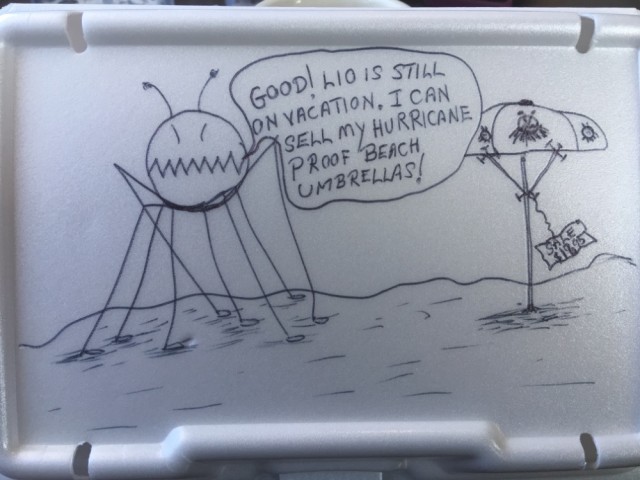 GOOD! LIO IS STILL
ON VACATION. I CAN
SELL MY HURRICANE
PROOF BEACH
UMBRELLAS!
SALE
$19.95